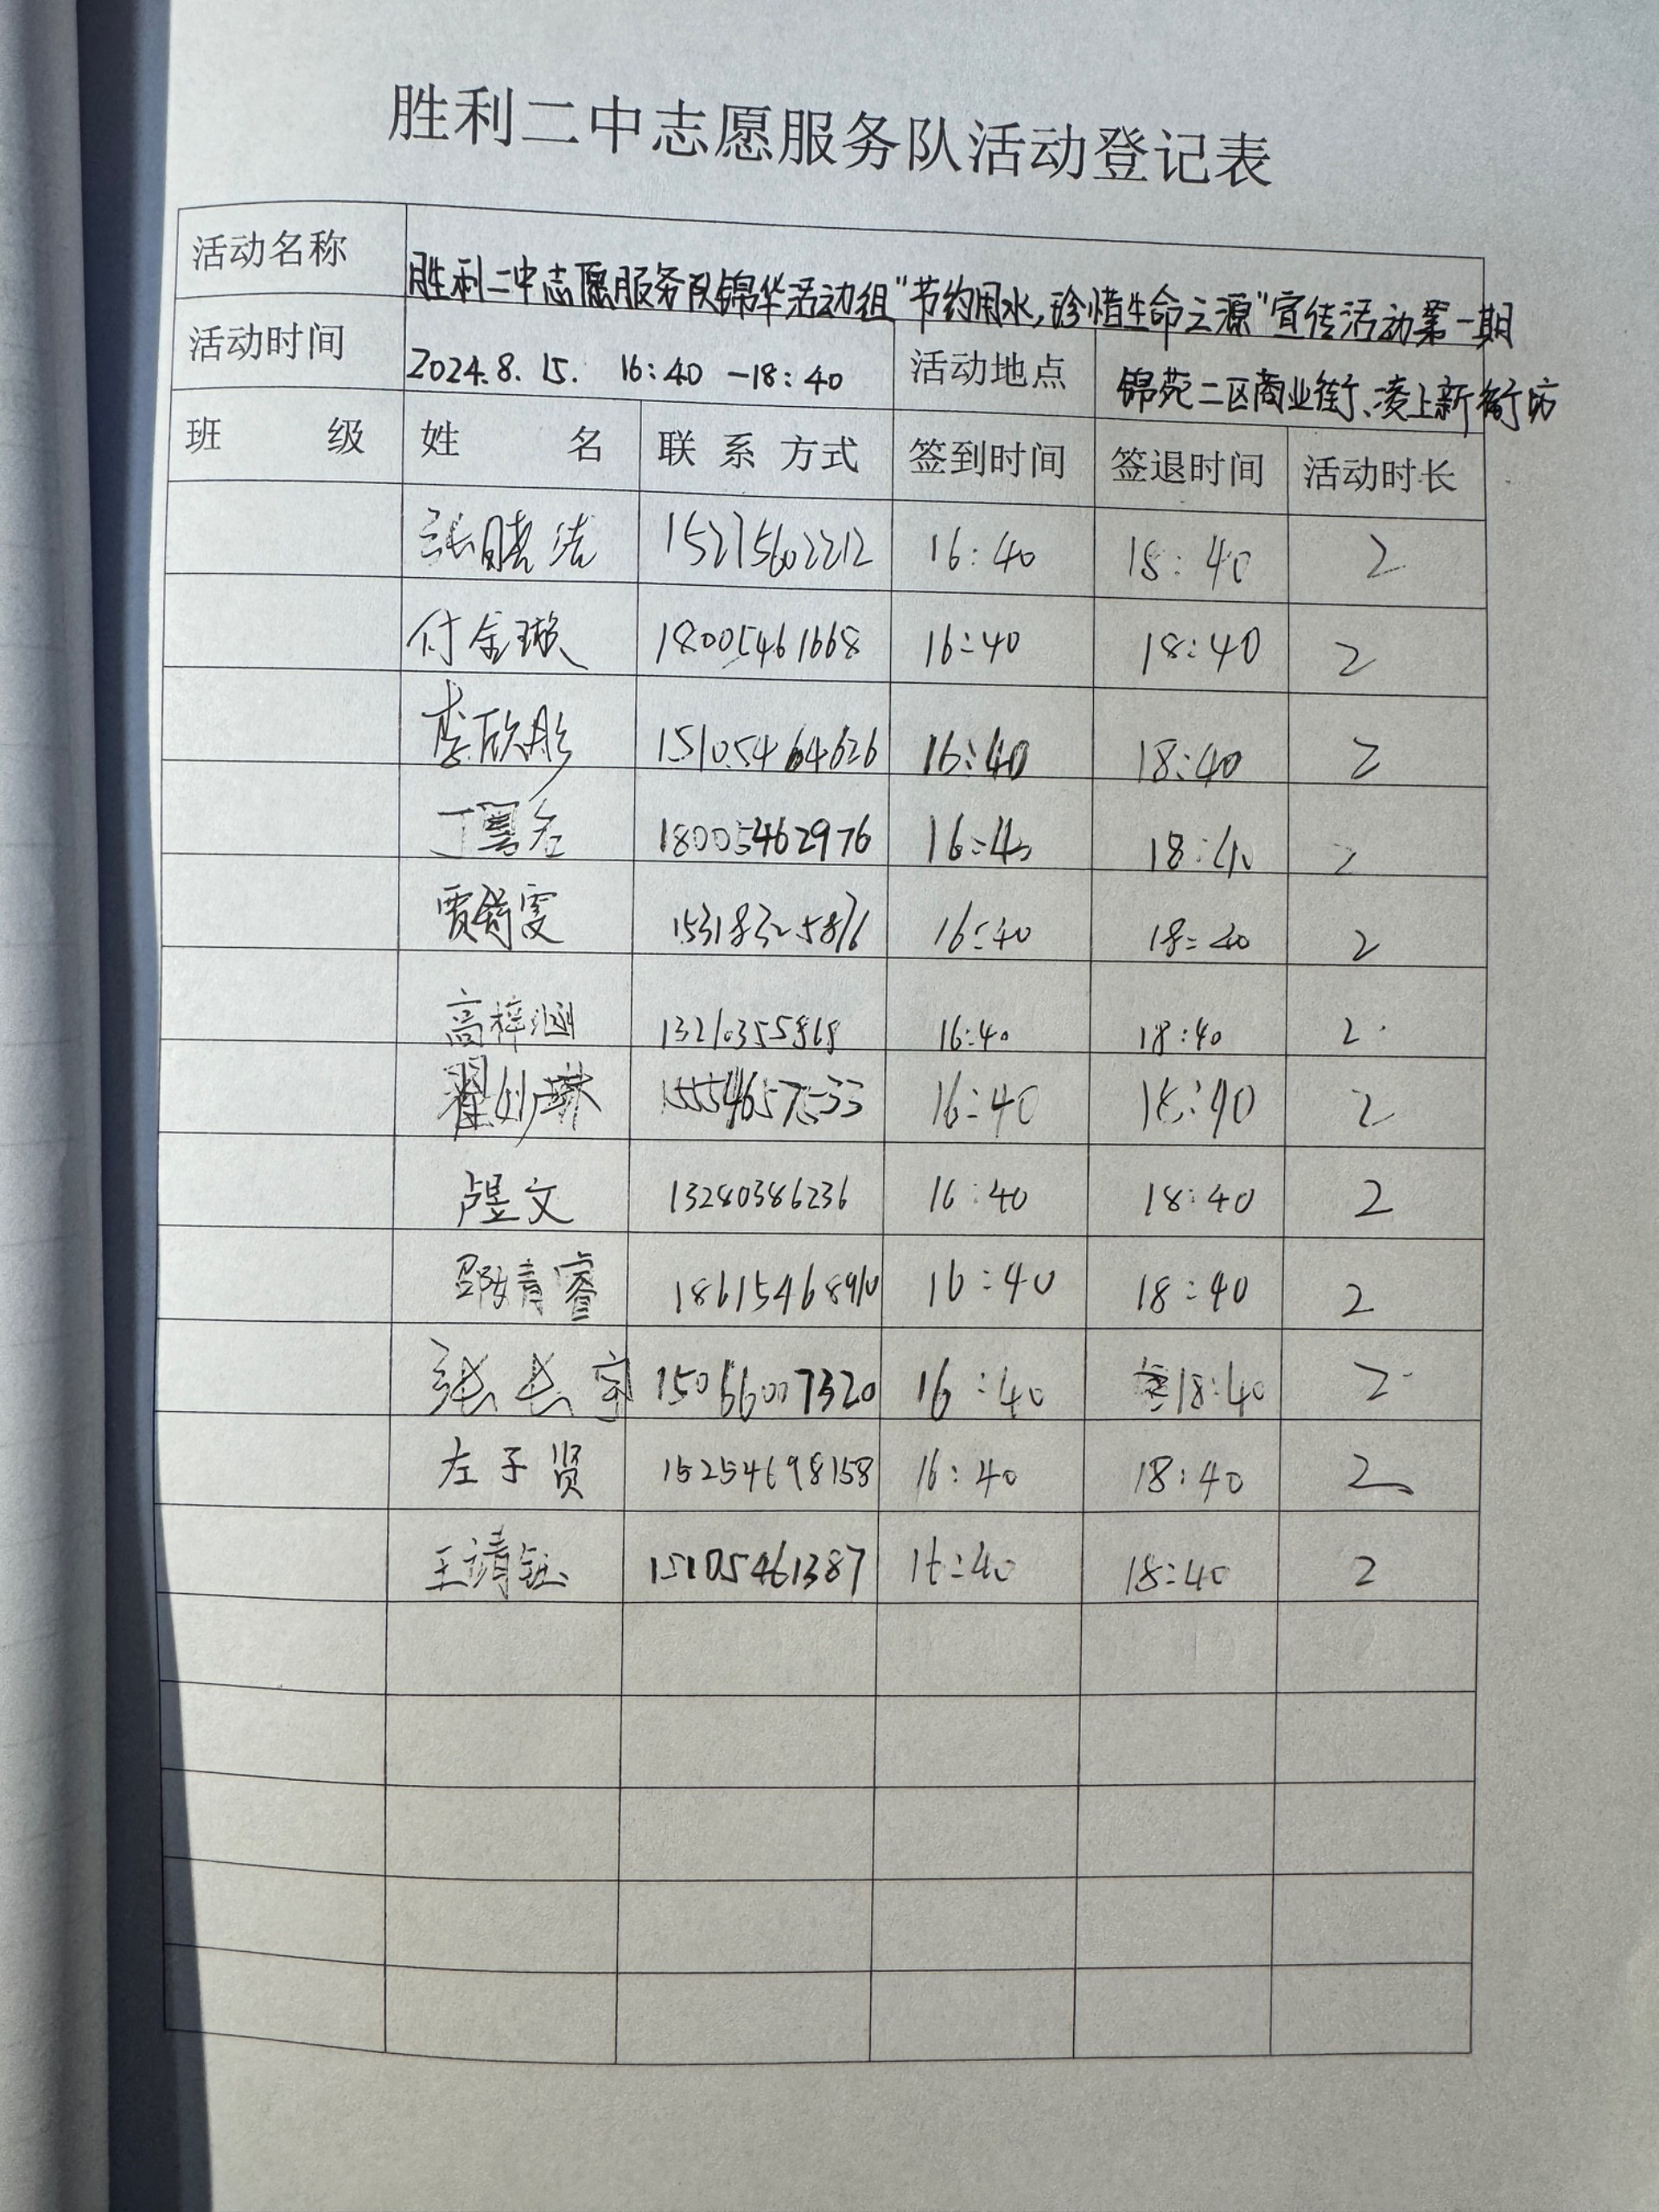 胜利二中志愿服务队活动登记表
活动名称 胜利二中志愿服务队锦华活动组"节约用水,珍惜生命之源"宣传活动第一期
活动时间 2024.8.15. 16:40-18:40 活动地点 锦苑二区商业街、凌上新街坊
班 级 姓 名 联系方式 签到时间 签退时间 活动时长
张 15275602212 16:40 18:40 2
付金璇 18005461668 16:40 18:40 2
李欣彤 15105464626 16:40 18:40 2
丁 18005462976 16:40 18:40 2
贾 雯 15318325876 16:40 18:40 2
高梓涵 13210355868 16:40 18:40 2
翟妙琳 15554657533 16:40 18:40 2
卢昱文 13280386236 16:40 18:40 2
邵靖睿 18615468910 16:40 18:40 2
张长宇 15066007320 16:40 18:40 2
左子贤 15254698158 16:40 18:40 2
王靖钰 15105461387 16:40 18:40 2